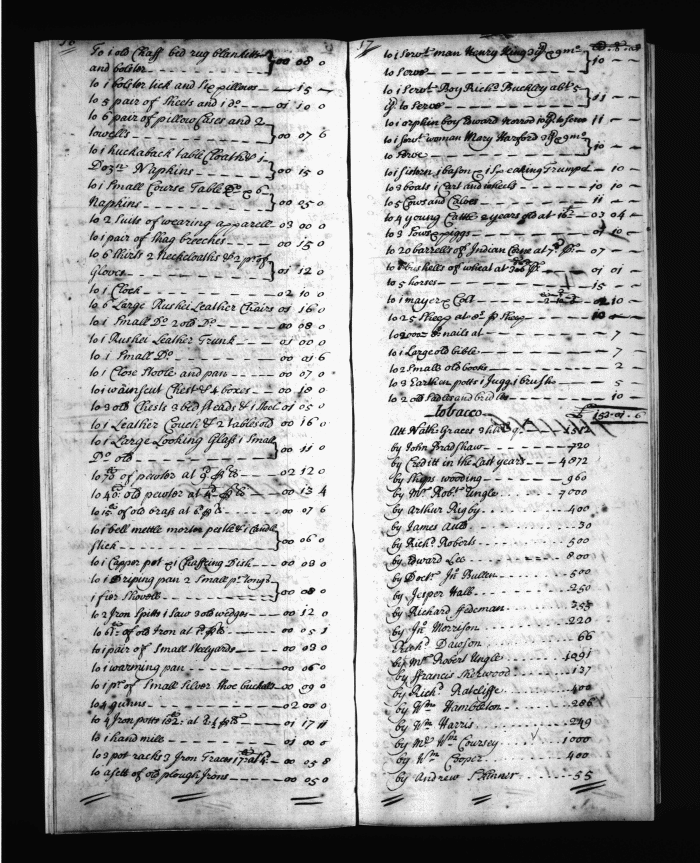 16
To 1 old Chaff bed rug blankitts
and bolster 00 08 0
to 1 bolster tick and pillows 15
to 5 pair of Sheets and 1 do 01 10 0
to 6 pair of pillow Cases and 2
towells 00 07 6
to 1 huckaback table Cloath & 1
Dozn Napkins 00 15 0
to 1 Small Course Table & 6
Napkins 00 25 0
to 2 Suits of wearing apparell 03 00 0
to 1 pair of Shag breeches 00 15 0
to 6 Shirts 2 Neckcloaths & 2 pr of
Gloves 01 12 0
to 1 Clock 02 10 0
to 6 Large Rushei Leather Chairs 01 16 0
to 1 Small Do 2 old Do 00 08 0
to 1 Rushei Leather Trunk 01 00 0
to 1 Small Do 00 01 6
to 1 Close Stoole and pan 00 07 0
to 1 wainscut Chest & 4 boxes 00 18 0
to 3 old Chests 3 bed steads & 1 01 05 0
to 1 Leather Couch & 2 tables old 00 16 0
to 1 Large Looking Glass 1 Small
Do old 00 11 0
to of pewter at 02 12 0
to 40 old pewter at 00 13 4
to of old brass at 00 07 6
to 1 bell mettle morter pestle & 1 Candle
stick 00 06 0
to 1 Copper pot & 1 Chaffing Dish 00 09 0
to 1 Driping pan 2 Small
1 fier Shovell 00 08 0
to 2 Iron Spitts 1 Saw 3 old wedges 00 12 0
to of old Iron at 00 05 1
to 1 pair of Small Stelyards 00 03 0
to 1 warming pan 00 06 0
to 1 pr of Small Silver shoe buckels 00 09 0
to 4 gunns 02 00 0
to 4 Iron potts at 01 17
to 1 hand mill 01 00 0
to 3 pot racks 3 Iron Traces at 00 05 8
to a sett of old plough Irons 00 05 0
17
to 1 Servt man Henry King 3 9 mo
to Serve 10
to 1 Servt Boy Richd Buckley abt 5
to Serve 11
to 1 orphin boy Edward to Serve 11
to 1 Servt woman Mary Harford 9 mo
to Serve 10
to 1 1 bason & 1 Speaking Trumpet 10
to 3 boats 1 Cart and wheels 10 10
to 5 Cows and Calves 11
to 4 young Cattle 2 years old at 03 04
to 3 Sows & piggs 01 10
to 20 barrells of Indian Corne at 07
to 7 bushells of wheat at 01 01
to 5 horses 15
to 1 mayer & Colt 02 10
to 25 Sheep at Sheep 10
to nails at 7
to 1 Large old bible 7
to 2 Small old books 2
to 3 Earthen potts 1 Jugg 1 brush 5
to 2 old Sadles and bridles 10
tobacco £ 153 01 6
Att Nathl Graces
by John Bradshaw 720
by Creditt in the Last years 4872
by Ships wooding 960
by Mr Robt Ungle 7000
by Arthur Rigby 400
by James Auld 30
by Richd Roberts 500
by Edward Lee 800
by Doctr Jno Bullen 500
by Jesper Hall 250
by Richard ffedeman 353
by Jno Morrison 220
Richd Dawson 66
by Mr Robert Ungle 1091
by ffrancis Sherwood 127
by Richd Ratcliffe 400
by Wm Hambleton 286
by Wm Harris 249
by Mr Wm Coursey 1000
by Wm Cooper 400
by Andrew Skinner 55